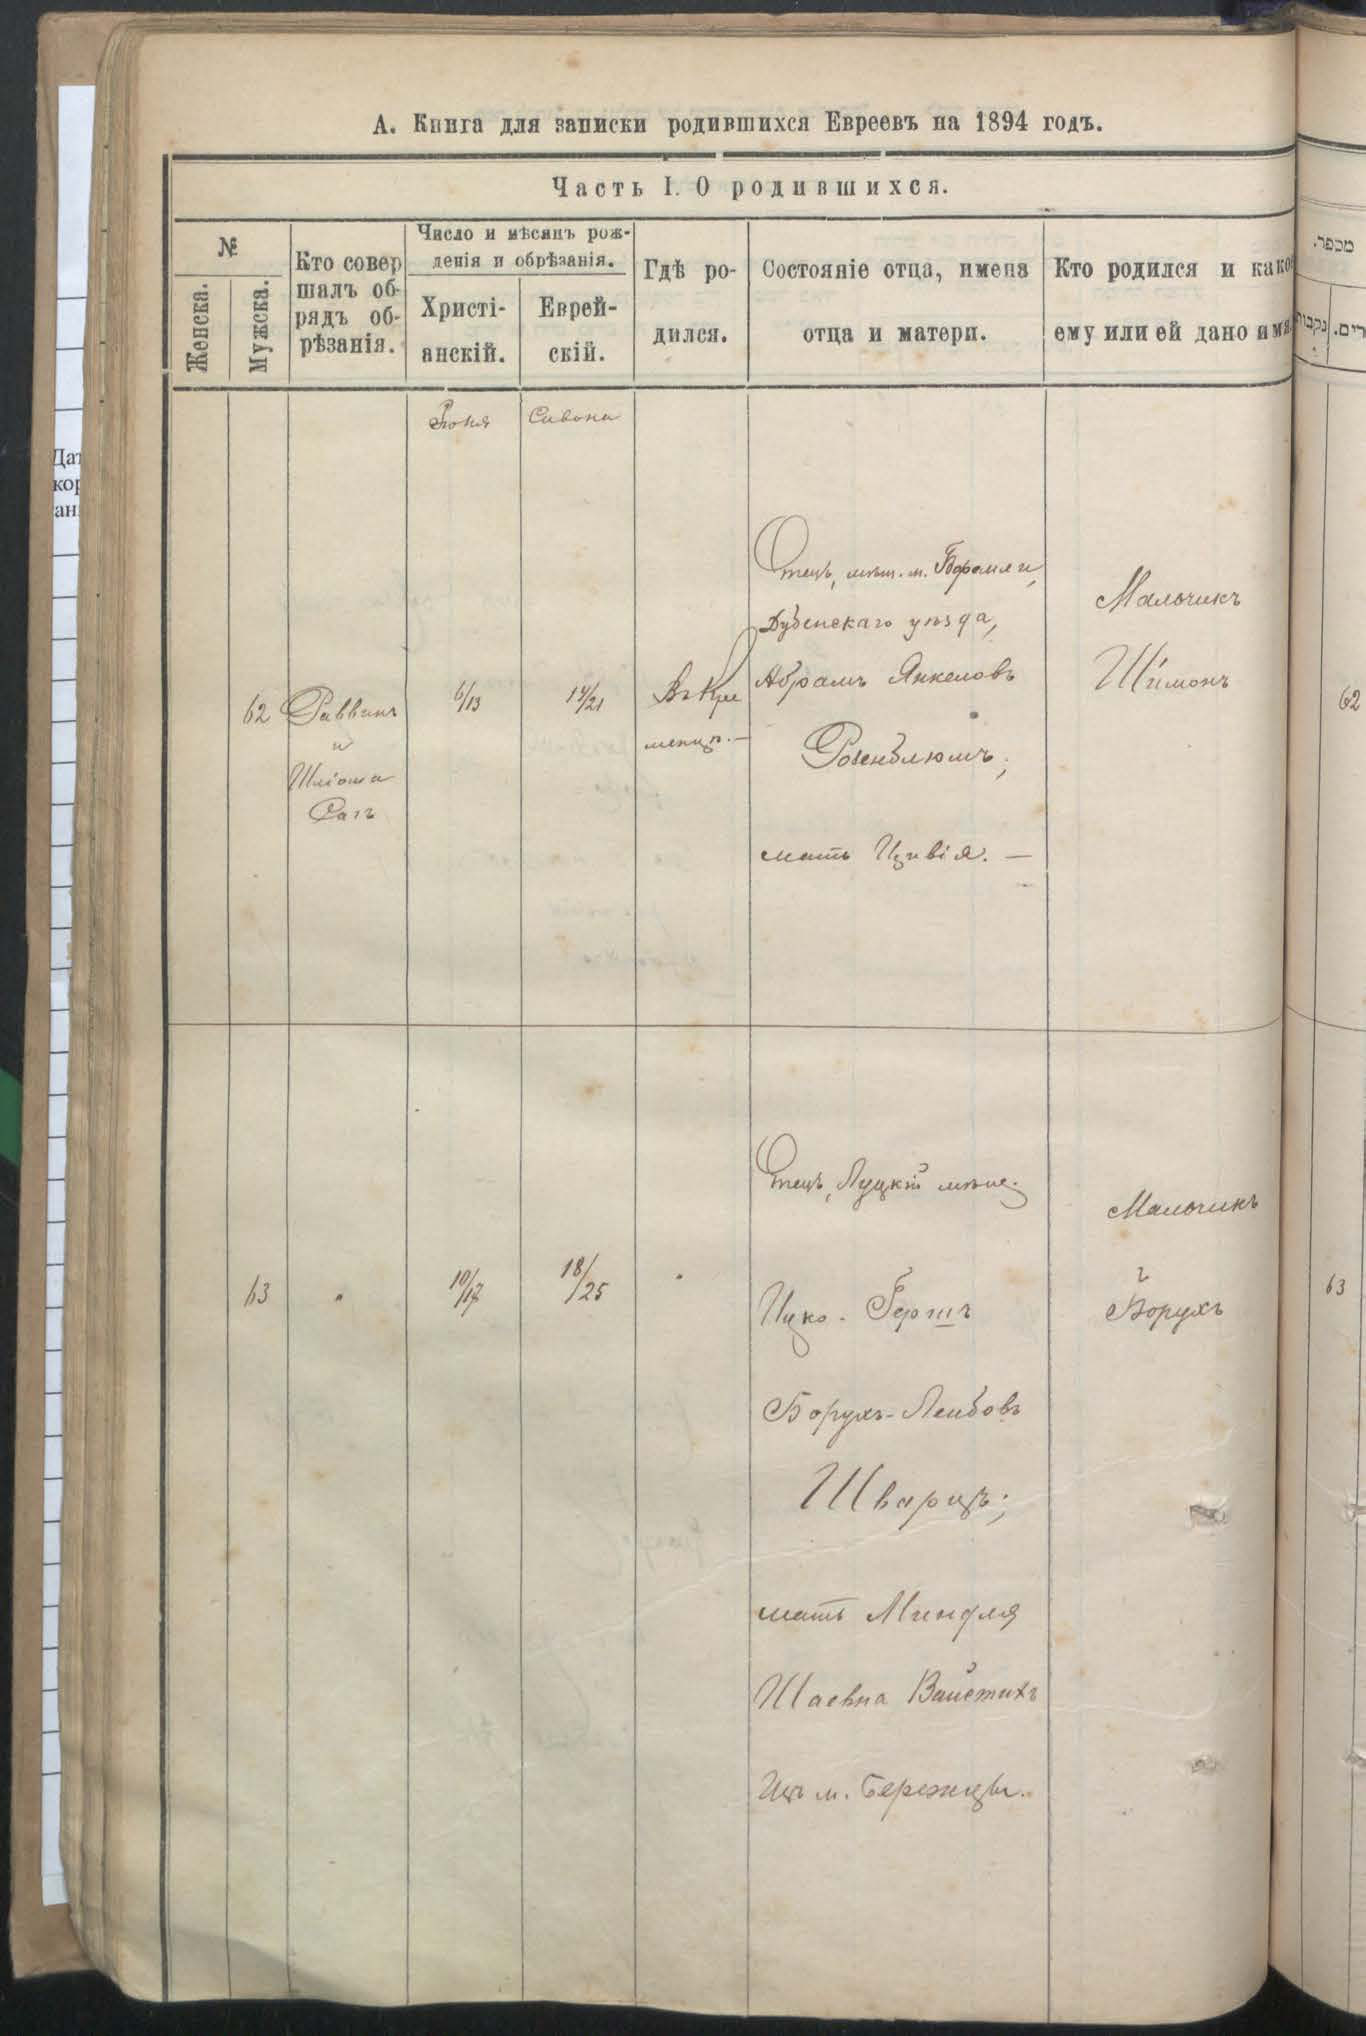 А. Книга для записки родившихся Евреевъ на 1894 годъ.
Часть I. О родившихся.
№
Женска.
Мужска.
Кто совер
шалъ об-
рядъ об-
рѣзанія.
Число и мѣсяцъ рож-
денія и обрѣзанія.
Христі-
анскій.
Еврей-
скій.
Гдѣ ро-
дился.
Состояніе отца, имена
отца и матери.
Кто родился и како
ему или ей дано имя
Іюня
Сивона
62
Раввинъ
и
Шліома
6/13
14/21
Въ Кре
менцѣ. —
Отецъ, мѣщ. м.
Дубенскаго уѣзда,
Абрамъ Янкеловъ
Розенблюмъ;
мать Цивія. —
Мальчикъ
Шимонъ
63
"
10/17
18/25
"
Отецъ, Луцкій мѣщ.
Ицко-Гершъ
Борухъ-Лейбовъ
Шварцъ;
мать Миндля
Шаевна
Изъ м. Бережцы.
Мальчикъ
Борухъ
מכפר.
נקבות
רים.
62
63
Дат
кор
ан